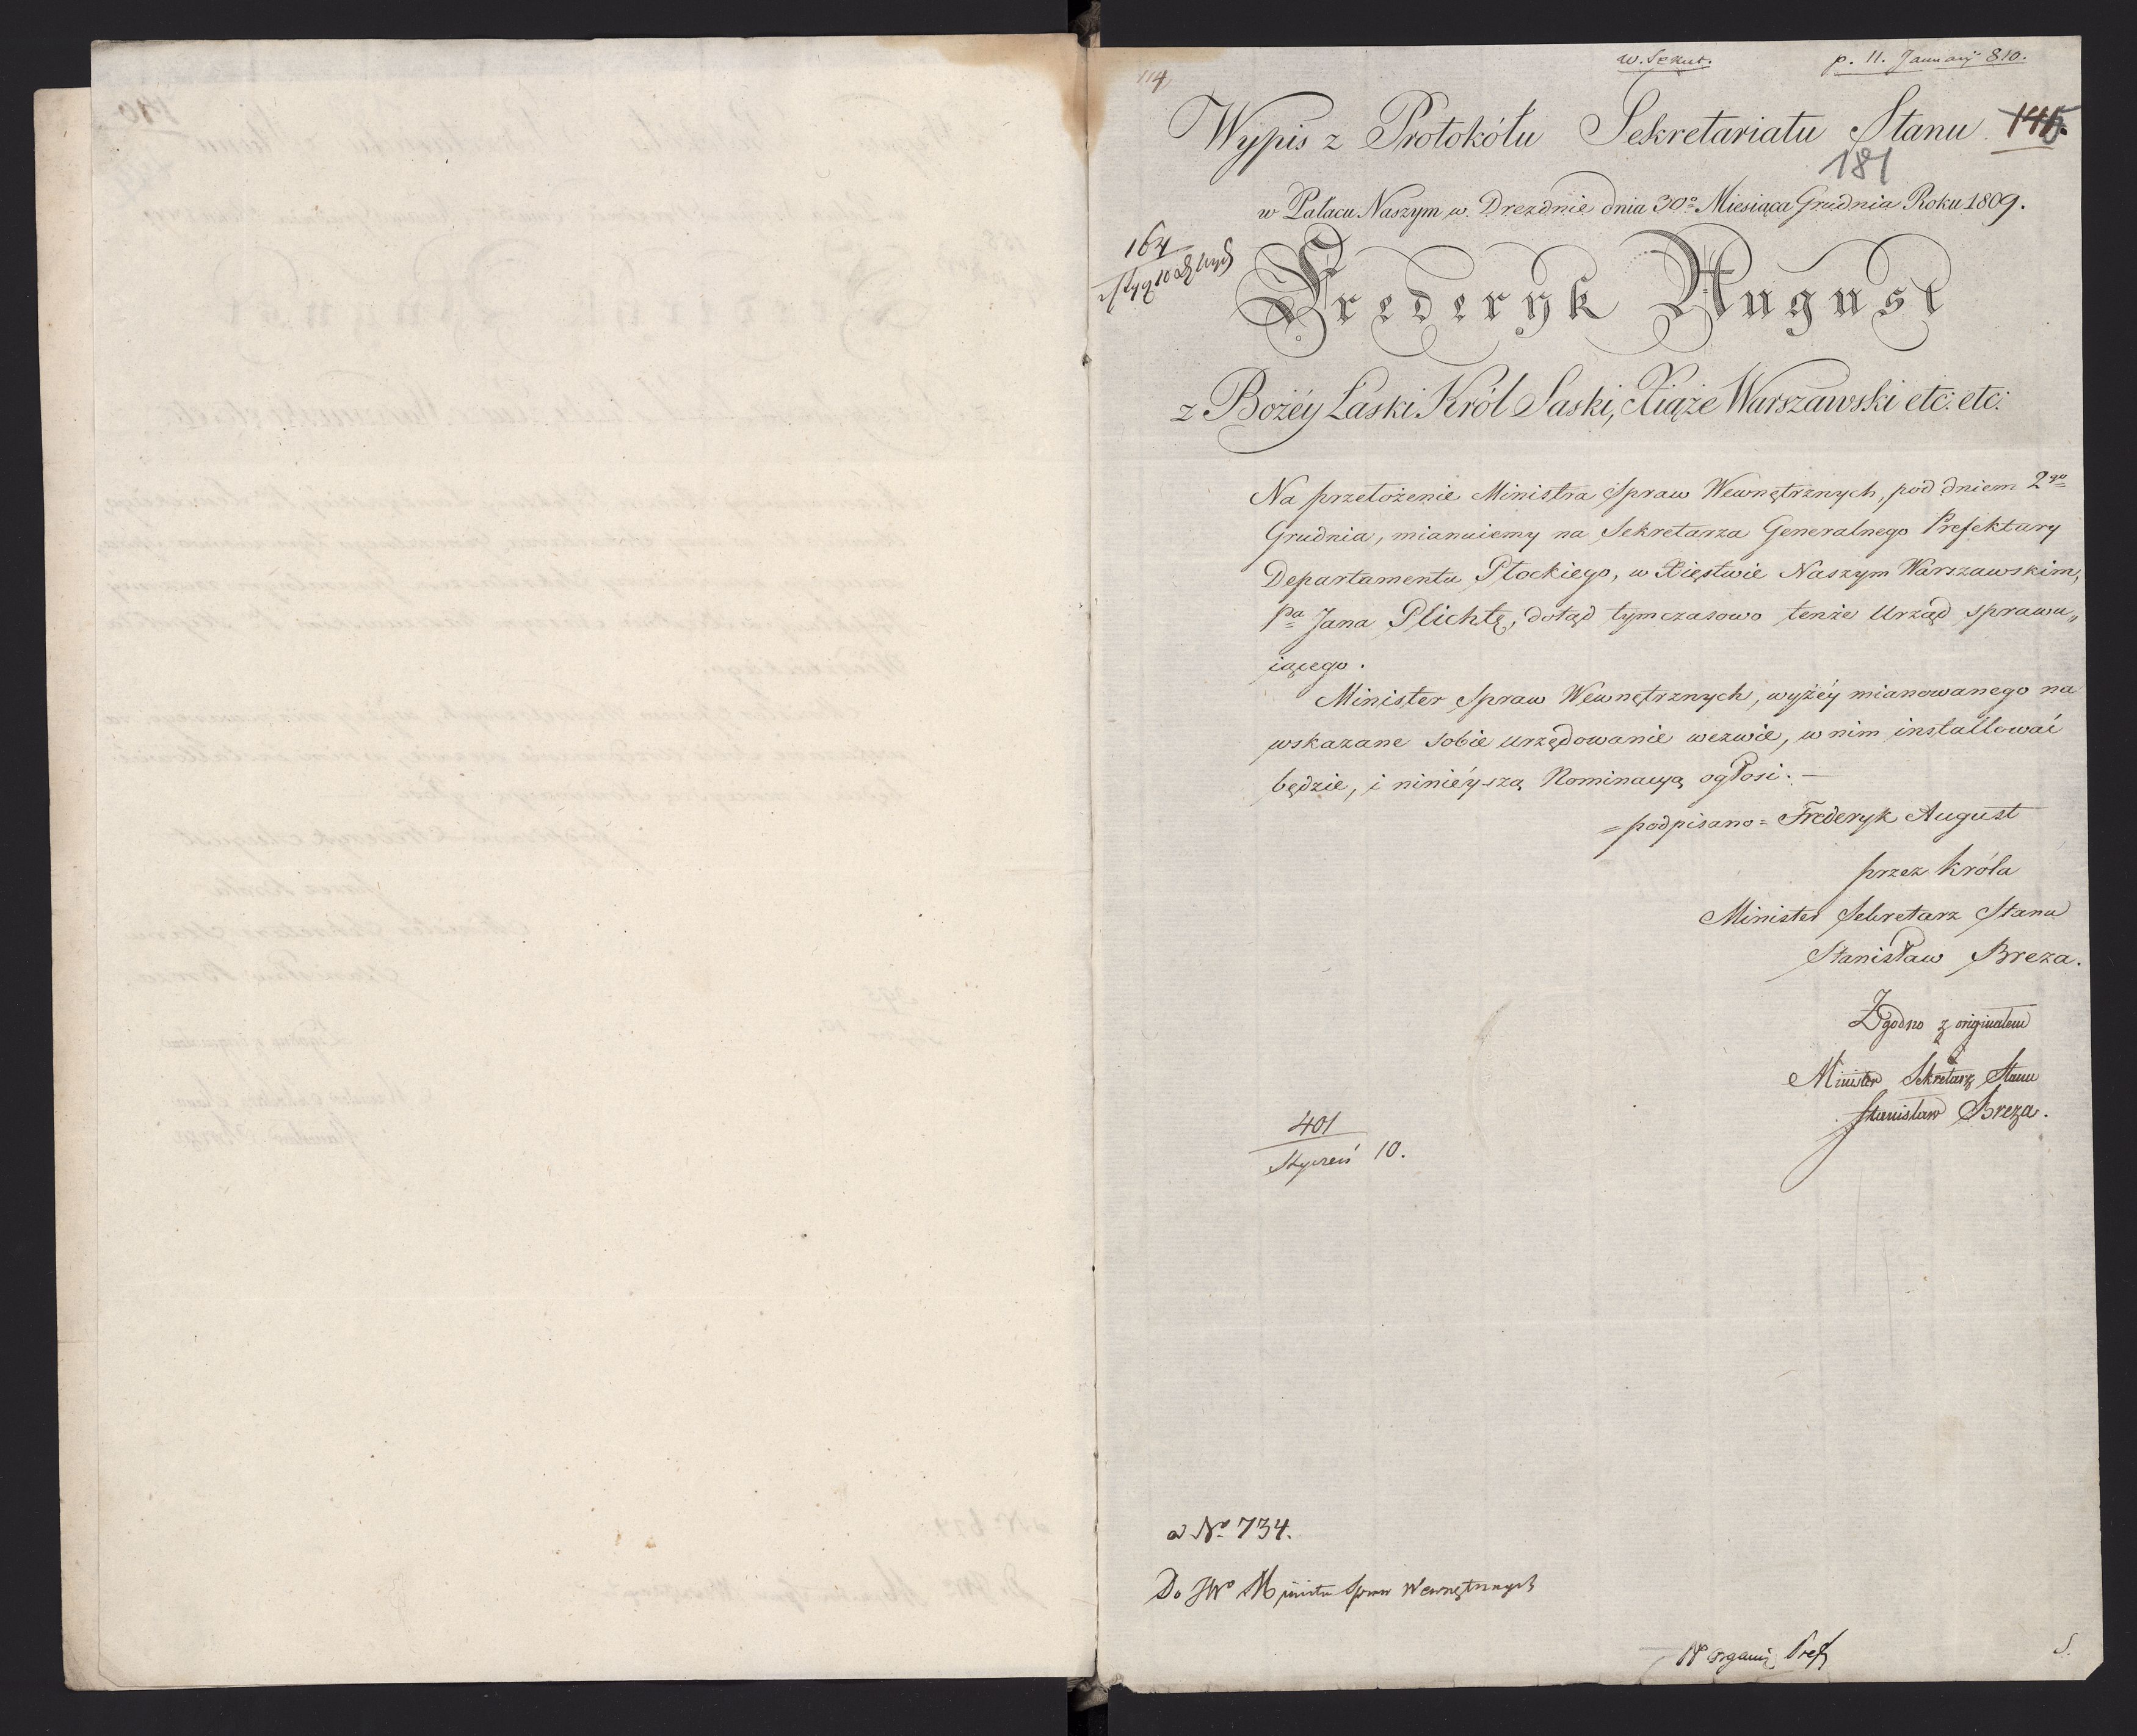 114
w. Sekret.
p. 11. January 810.
Wypis z Protokółu Sekretariatu Stanu 115.
181
w Pałacu Naszym w Dreznie dnia 30º Miesiąca Grudnia Roku 1809.
164
Frederyk August
z Bożéy Łaski Król Saski, Xiąże Warszawski etc: etc:
Na przełożenie Ministra Spraw Wewnętrznych, pod dniem 2go
Grudnia, mianuiemy na Sekretarza Generalnego Prefektury
Departamentu Płockiego, w Xięstwie Naszym Warszawskim,
Pa Jana Plichtę, dotąd tymczasowo tenże Urząd sprawu„
iącego.
Minister Spraw Wewnętrznych, wyżéy mianowanego na
wskazane sobie urzędowanie wezwie, w nim installować
będzie, i ninieyszą Nominacyą ogłosi. —
= podpisano = Frederyk August
przez Króla
Minister Sekretarz Stanu
Stanisław Breza.
Zgodno z originałem
Minister Sekretarz Stanu
Stanisław Breza.
401
Styczeń 10.
ad Nº 734.
Do JWº Ministra Spraw Wewnętrznych
organiz. Pref.
S.